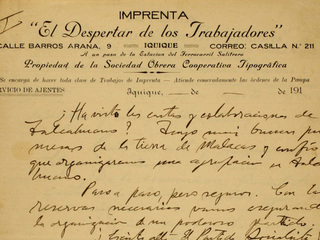 IMPRENTA
"El Despertar de los Trabajadores"
CALLE BARROS ARANA, 9 IQUIQUE CORREO: CASILLA N.° 211
A un paso de la Estacion del Ferrocarril Salitrero
Propiedad de la Sociedad Obrera Cooperativa Tipográfica
Se encarga de hacer toda clase de Trabajos de Imprenta - Atiende esmeradamente las órdenes de la Pampa
SERVICIO DE AJENTES Iquique, de de 191
¿Ha visto las cartas y colaboraciones de
Talcahuano? Tengo mui buenas
de la tierra de y
que organizaremos una agrupacion en
Paso a paso, pero seguros. Con las
reservas necesarias vamos
la organizacion de un poderoso Partido.
el Partido Socialista